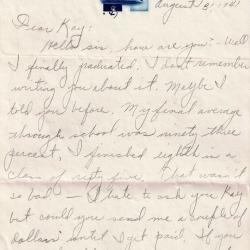 August 3, 1941
Dear Kay:
Hello sir, how are you? - Well
I finally graduated. I don't remember
writing you about it. Maybe I
told you before. My final average
through school was ninety three
percent, I finished eighth in a
class of sixty five. That wasn't
so bad — I hate to ask you Kay
but could you send me a couple of
dollars until I get paid. If you